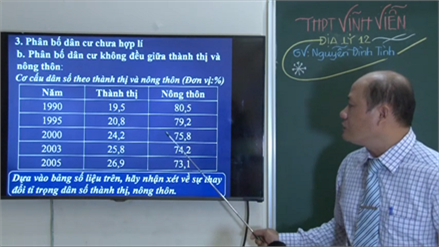 3. Phân bố dân cư chưa hợp lí
b. Phân bố dân cư không đều giữa thành thị và
nông thôn:
Cơ cấu dân số theo thành thị và nông thôn (Đơn vị:%)
Năm Thành thị Nông thôn
1990 19,5 80,5
1995 20,8 79,2
2000 24,2 75,8
2003 25,8 74,2
2005 26,9 73,1
Dựa vào bảng số liệu trên, hãy nhận xét về sự thay
đổi tỉ trọng dân số thành thị, nông thôn.
THPT VĨNH VIỄN
ĐỊA LÝ 12
GV: Nguyễn Đình Tình